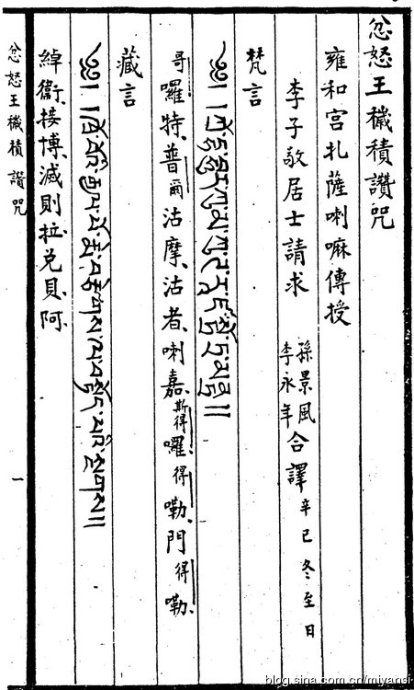 忿怒王穢積讚咒
雍和宮扎薩喇嘛傳授
李子敬居士請求 孫景風 李永年 合譯 辛巳冬至日
梵言
哥囉特普爾沽摩沽者喇嘉斯得囉得嘞門得嘞
藏言
༄༅། །ཁྲོ་བོའི་རྒྱལ་པོ་སྨེ་བརྩེགས་ལ་བསྟོད་པའི་སྔགས།།
綽衞接博滅則拉兌貝阿
忿怒王穢積讚咒
一